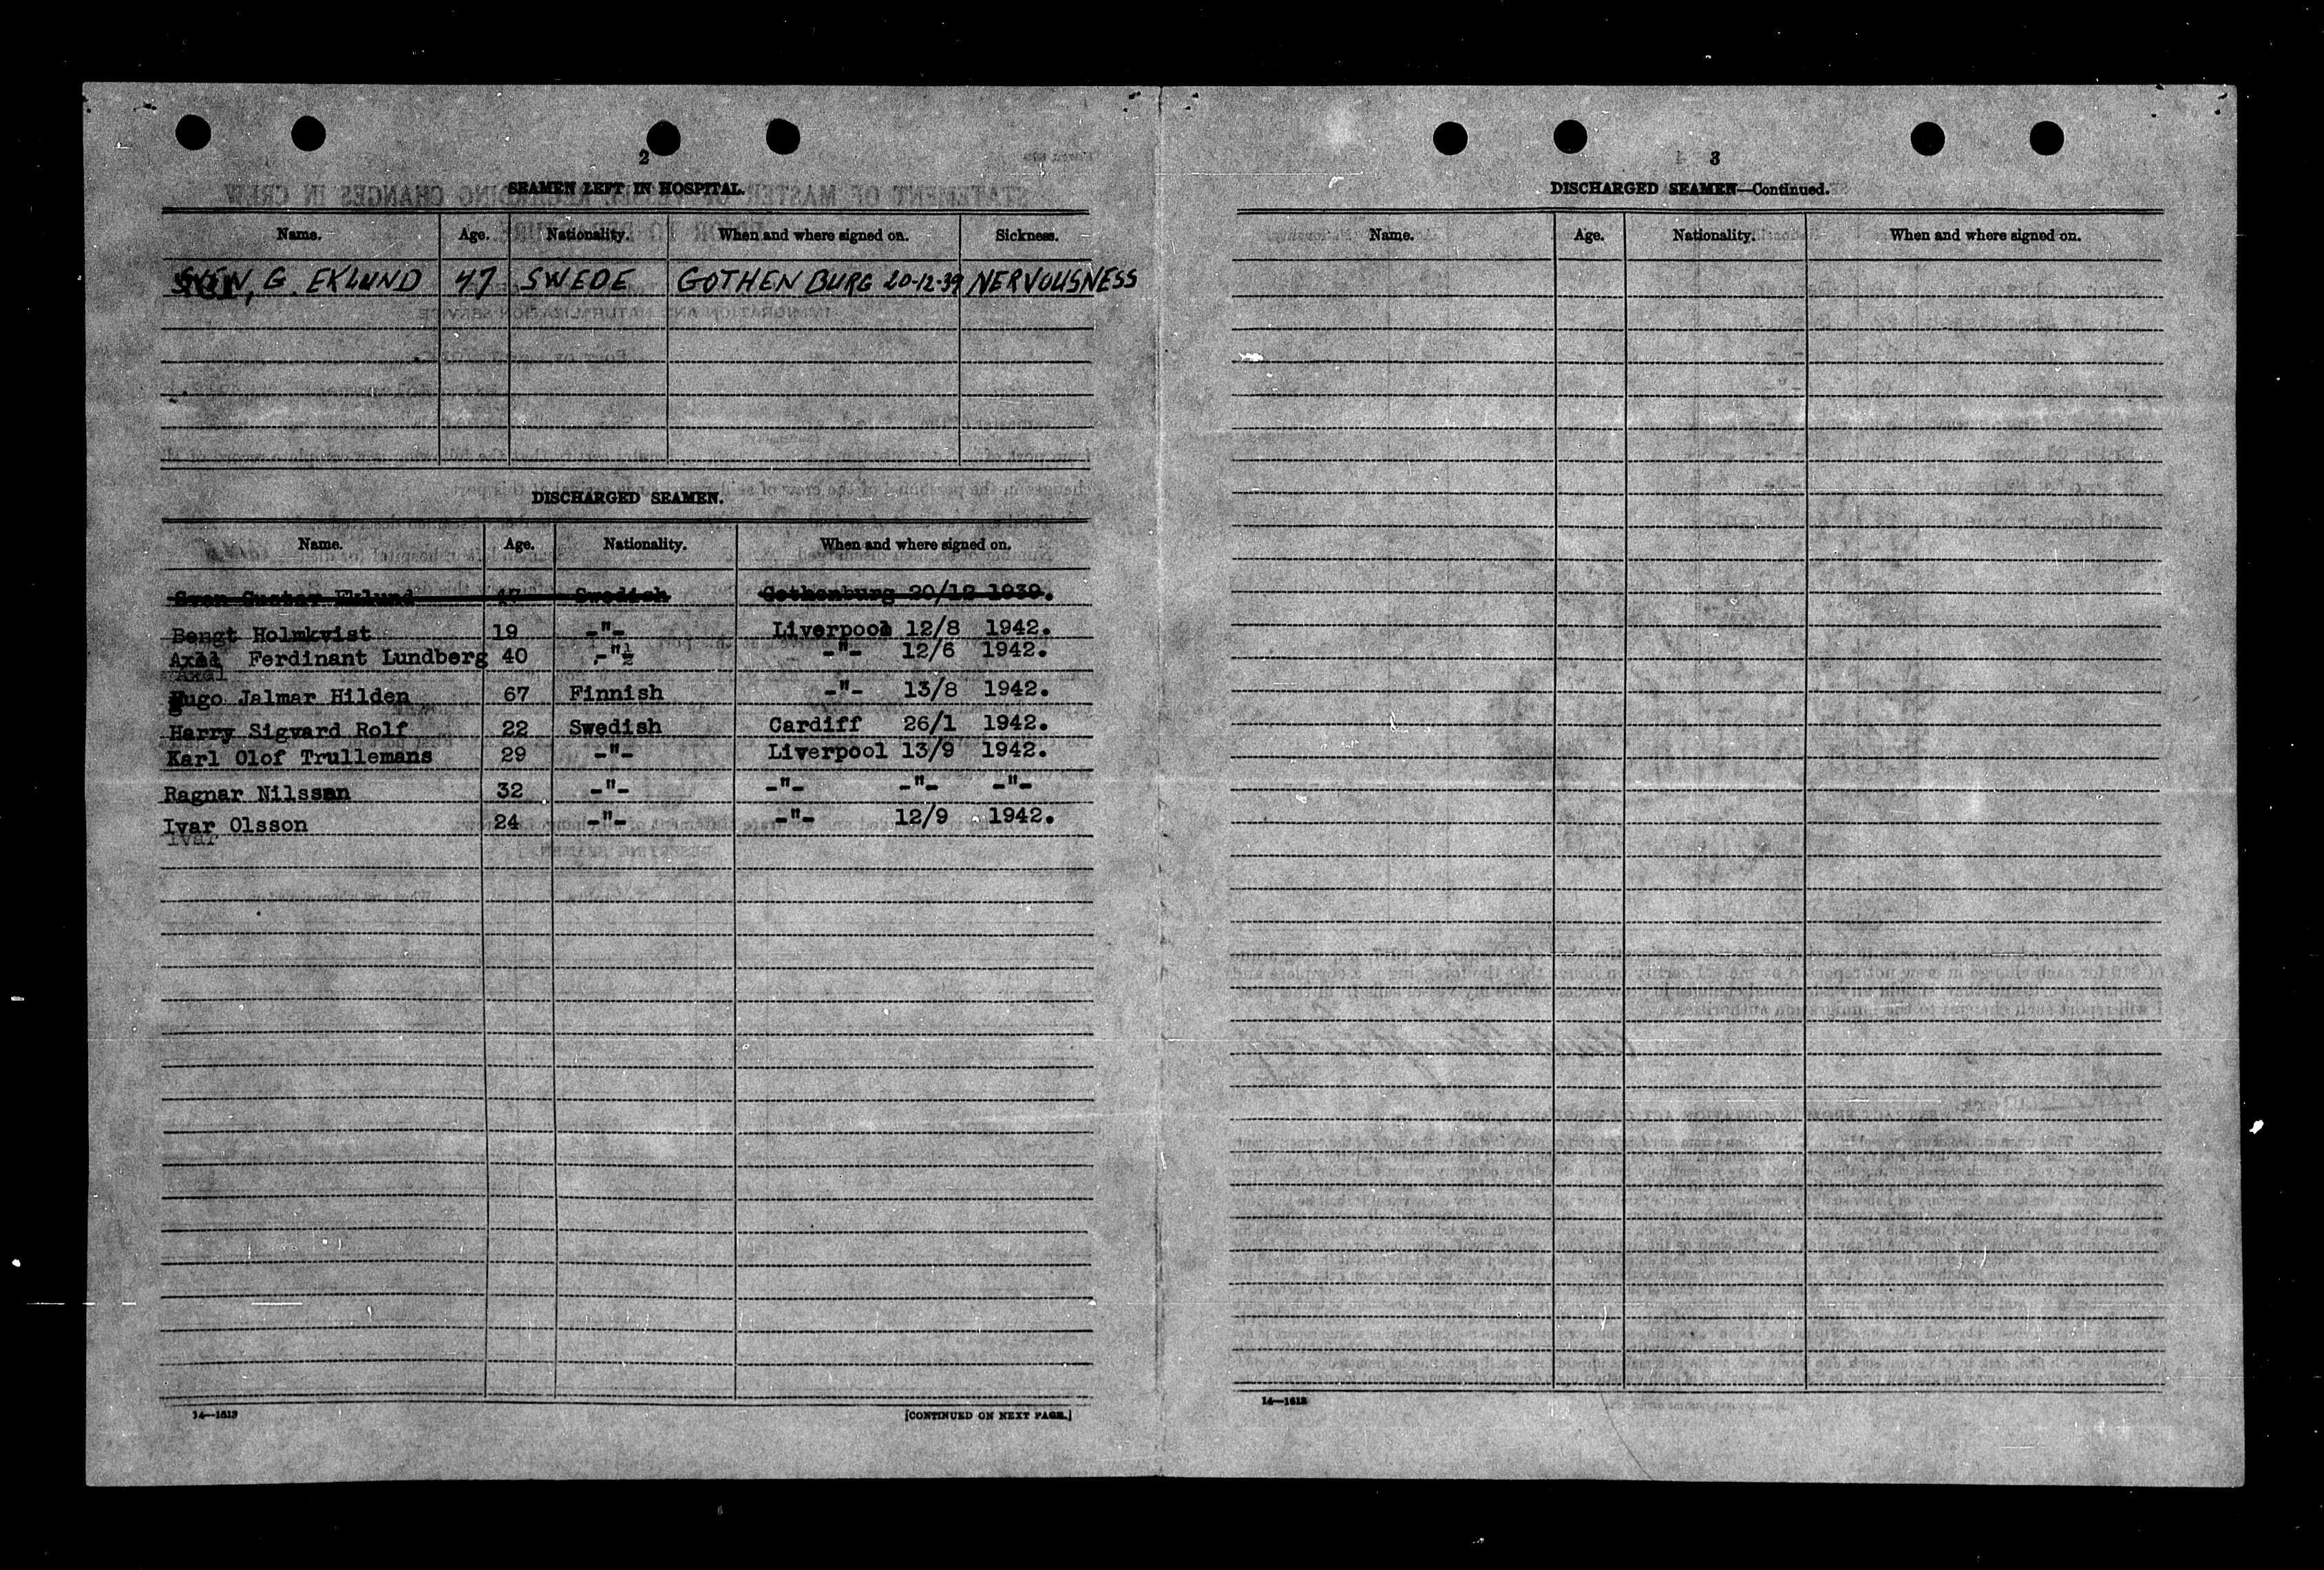 2
SEAMEN LEFT IN HOSPITAL.
Name. Age. Nationality. When and where signed on. Sickness.
SVEN, G. EKLUND 47 SWEDE GOTHENBURG 20-12-39 NERVOUSNESS
DISCHARGED SEAMEN.
Name. Age. Nationality. When and where signed on.
Sven Gustav Eklund 47 Swedish Gothenburg 20/12 1939.
Bengt Holmkvist 19 -"- Liverpool 12/8 1942.
Axel Ferdinant Lundberg 40 -"- -"- 12/6 1942.
Axel
Hugo Jalmar Hilden 67 Finnish -"- 13/8 1942.
Harry Sigvard Rolf 22 Swedish Cardiff 26/1 1942.
Karl Olof Trullemans 29 -"- Liverpool 13/9 1942.
Ragnar Nilsson 32 -"- -"- -"- -"-
Ivar Olsson 24 -"- -"- 12/9 1942.
Ivar
14—1613
[CONTINUED ON NEXT PAGE.]
3
DISCHARGED SEAMEN—Continued.
Name. Age. Nationality. When and where signed on.
14—1613